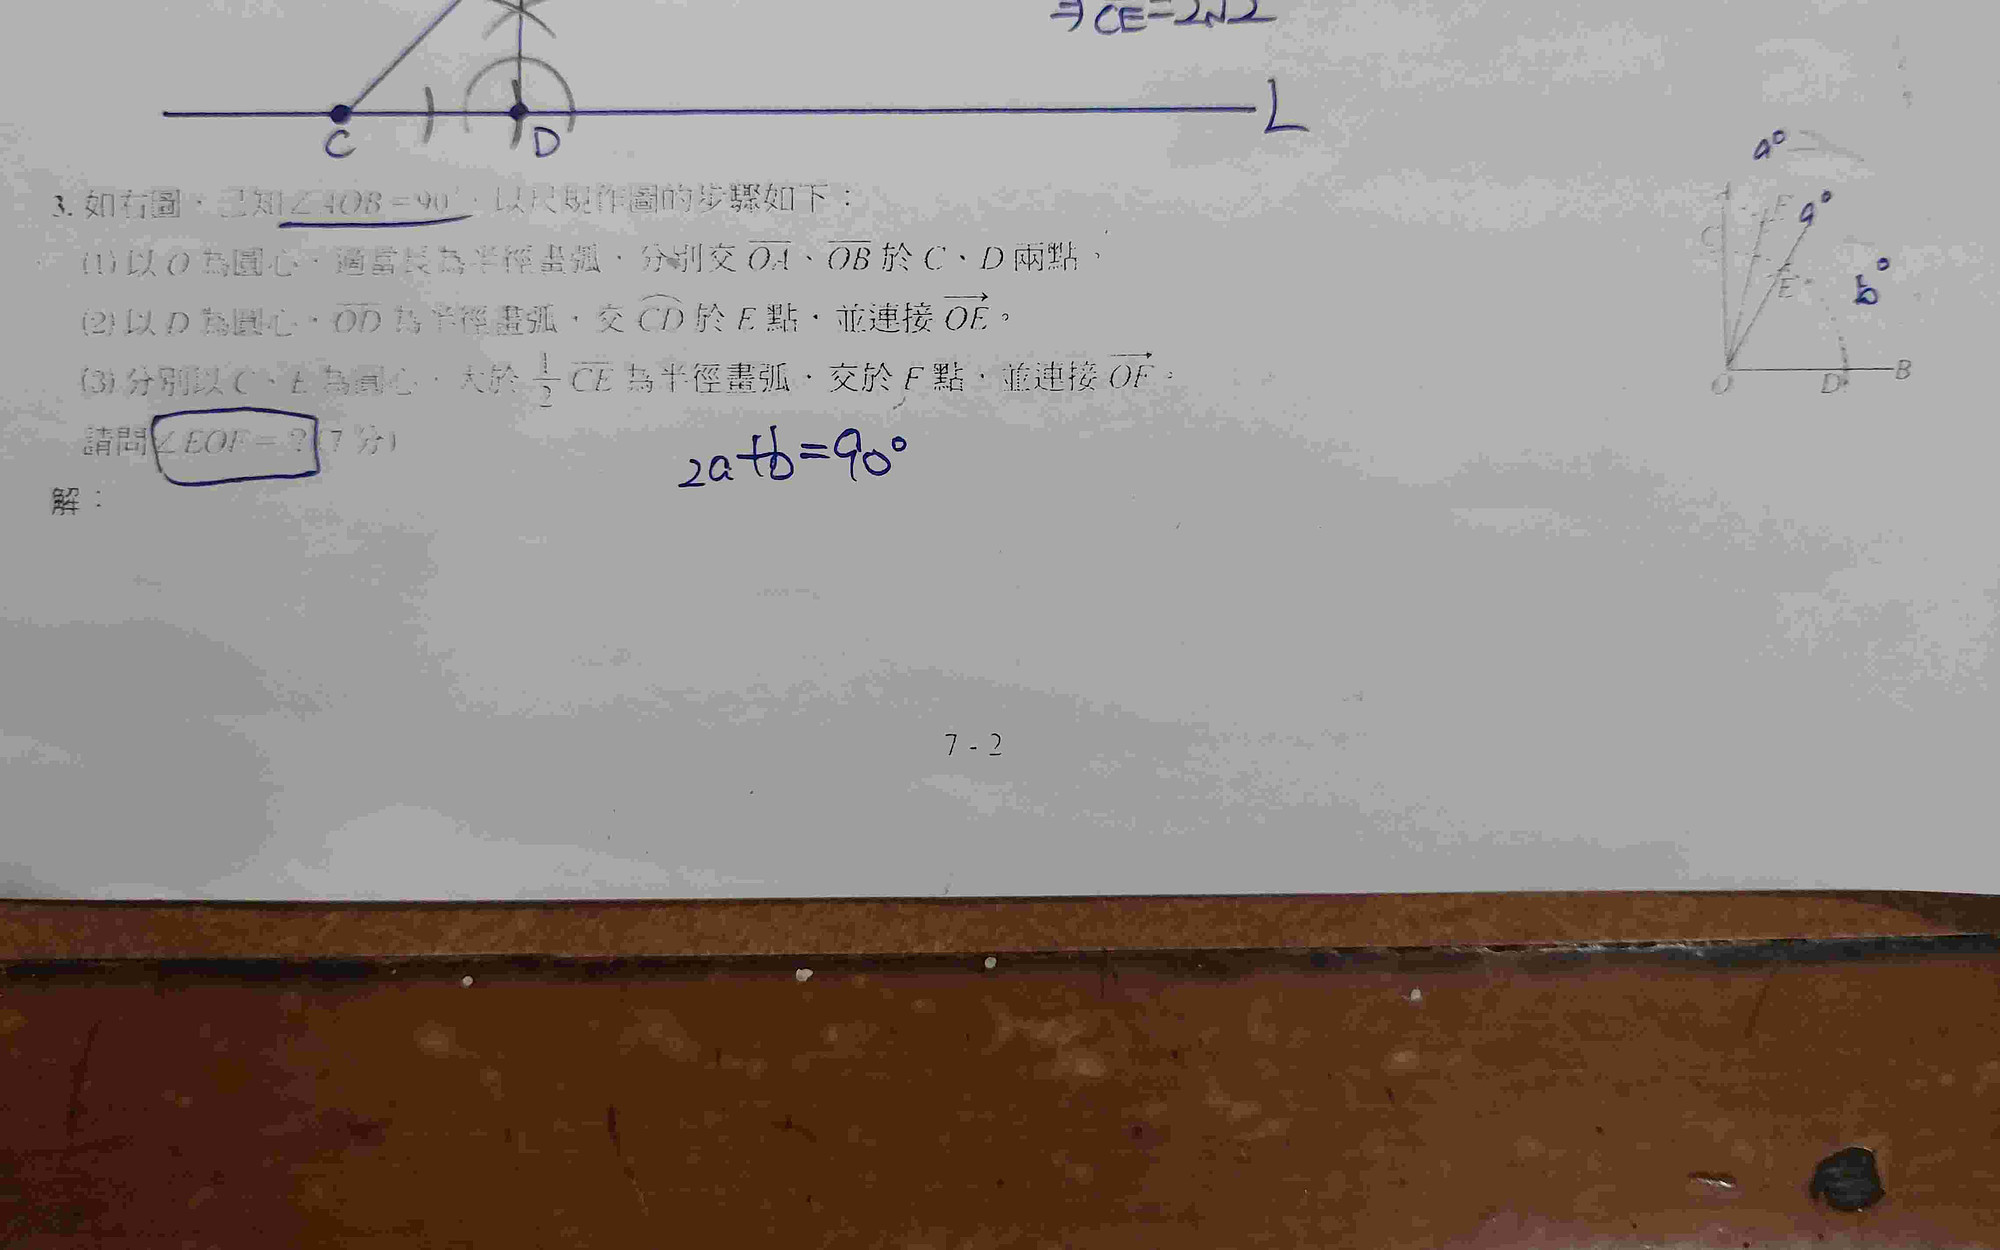 ⇒CE=2√2
C
D
L
3. 如右圖，已知∠AOB=90°，以尺規作圖的步驟如下：
(1)以O為圓心，適當長為半徑畫弧，分別交OA、OB於C、D兩點。
(2)以D為圓心，OD為半徑畫弧，交CD於E點，並連接OE。
(3)分別以C、E為圓心，大於1/2CE為半徑畫弧，交於F點，並連接OF。
請問∠EOF=？(7分)
2a+b=90°
解：
a°
A
F
a°
C
E
b°
O
D
B
7-2